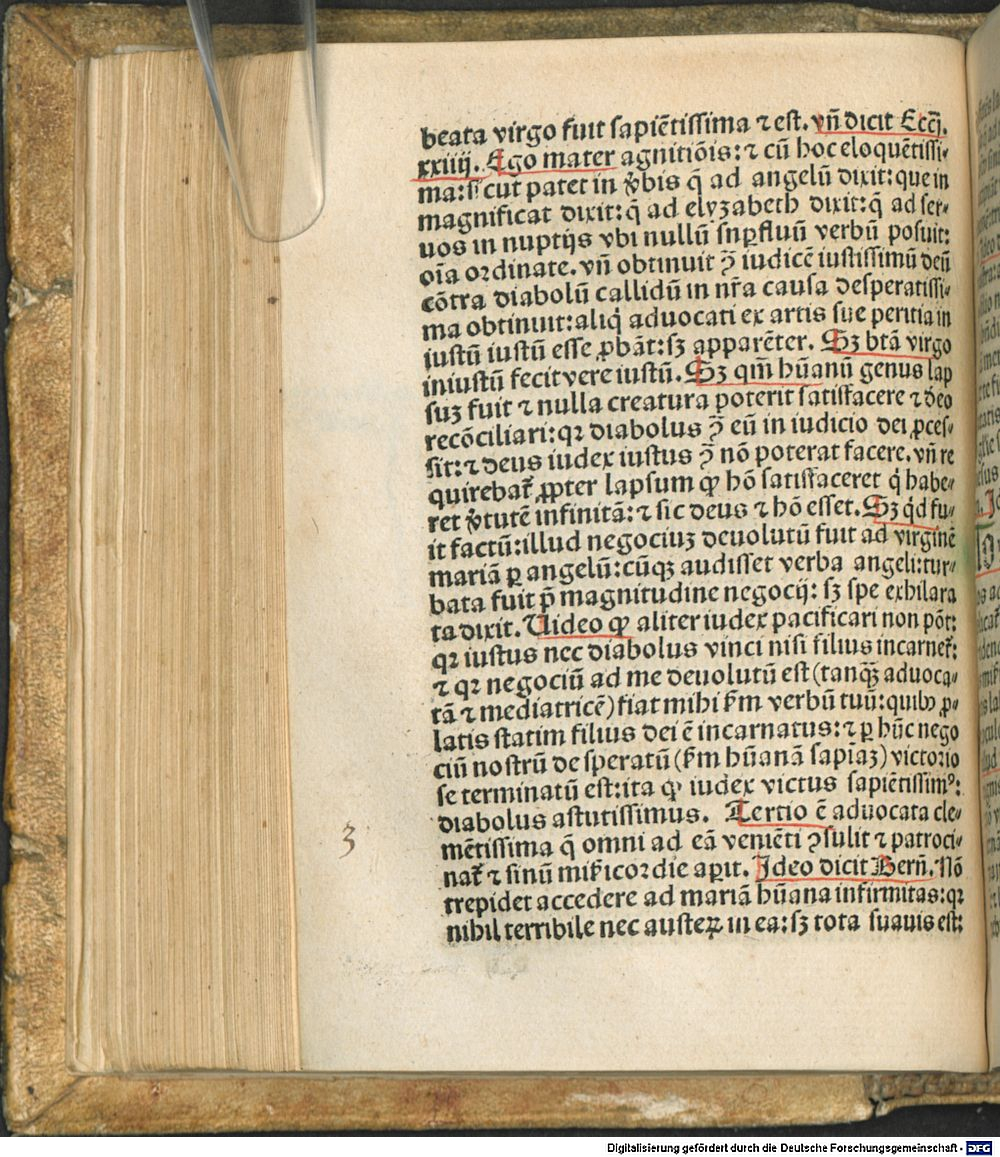 beata virgo fuit sapiẽtissima ⁊ est. vñ dicit Eccĩ.
xxiiij. Ego mater agnitiõis: ⁊ cũ hoc eloquẽtissi⸗
ma: sicut patet in v̾bis q̃ ad angelũ dixit: que in
magnificat dixit: q̃ ad elyzabeth dixit: q̃ ad ser⸗
uos in nuptijs vbi nullũ suꝑfluũ verbũ posuit:
oĩa ordinate. vñ obtinuit ꝯ̃ iudicẽ iustissimũ deũ
cõtra diabolũ callidũ in nr̃a causa desperatissi⸗
ma obtinuit: aliq̇ aduocati ex artis sue peritia in
iustũ iustũ esse ꝓbãt: sꝫ apparẽter. Sꝫ btã virgo
iniustũ fecit vere iustũ. Sꝫ qm̃ hũanũ genus lap
suꝫ fuit ⁊ nulla creatura poterit satisfacere ⁊ deo
recõciliari: qꝛ diabolus ꝯ̃ eũ in iudicio dei ꝓces⸗
sit: ⁊ deus iudex iustus ꝯ̃ nõ poterat facere. vñ re
quirebat̃ ꝓpter lapsum ꝙ hõ satisfaceret q̇ habe⸗
ret v̾tutẽ infinitã: ⁊ sic deus ⁊ hõ esset. Sꝫ q̇d fu⸗
it factũ: illud negociuꝫ deuolutũ fuit ad virginẽ
mariã ꝑ angelũ: cũqꝫ audisset verba angeli: tur⸗
bata fuit p̃ magnitudine negocij: sꝫ spe exhilara
ta dixit. Uideo ꝙ aliter iudex pacificari non põt:
qꝛ iustus nec diabolus vinci nisi filius incarnet̃:
⁊ qꝛ negociũ ad me deuolutũ est (tanqꝫ̃ aduoca⸗
tã ⁊ mediatricẽ) fiat mihi ẜm verbũ tuũ: quibꝰ ꝓ⸗
latis statim filius dei ẽ incarnatus: ⁊ ꝑ hũc nego
ciũ nostrũ desperatũ (ẜm hũanã sapĩaꝫ) victorio
se terminatũ est: ita ꝙ iudex victus sapiẽtissimꝰ:
diabolus astutissimus. Tertio ẽ aduocata cle⸗
mẽtissima q̃ omni ad eã veniẽti ꝯsulit ⁊ patroci⸗
nat̃ ⁊ sinũ mĩcordie aꝑit. Ideo dicit Berñ. Nõ
3
trepidet accedere ad mariã hũana infirmitas: qꝛ
nihil terribile nec austeꝝ in ea: sꝫ tota suauis est:
Digitalisierung gefördert durch die Deutsche Forschungsgemeinschaft - DFG